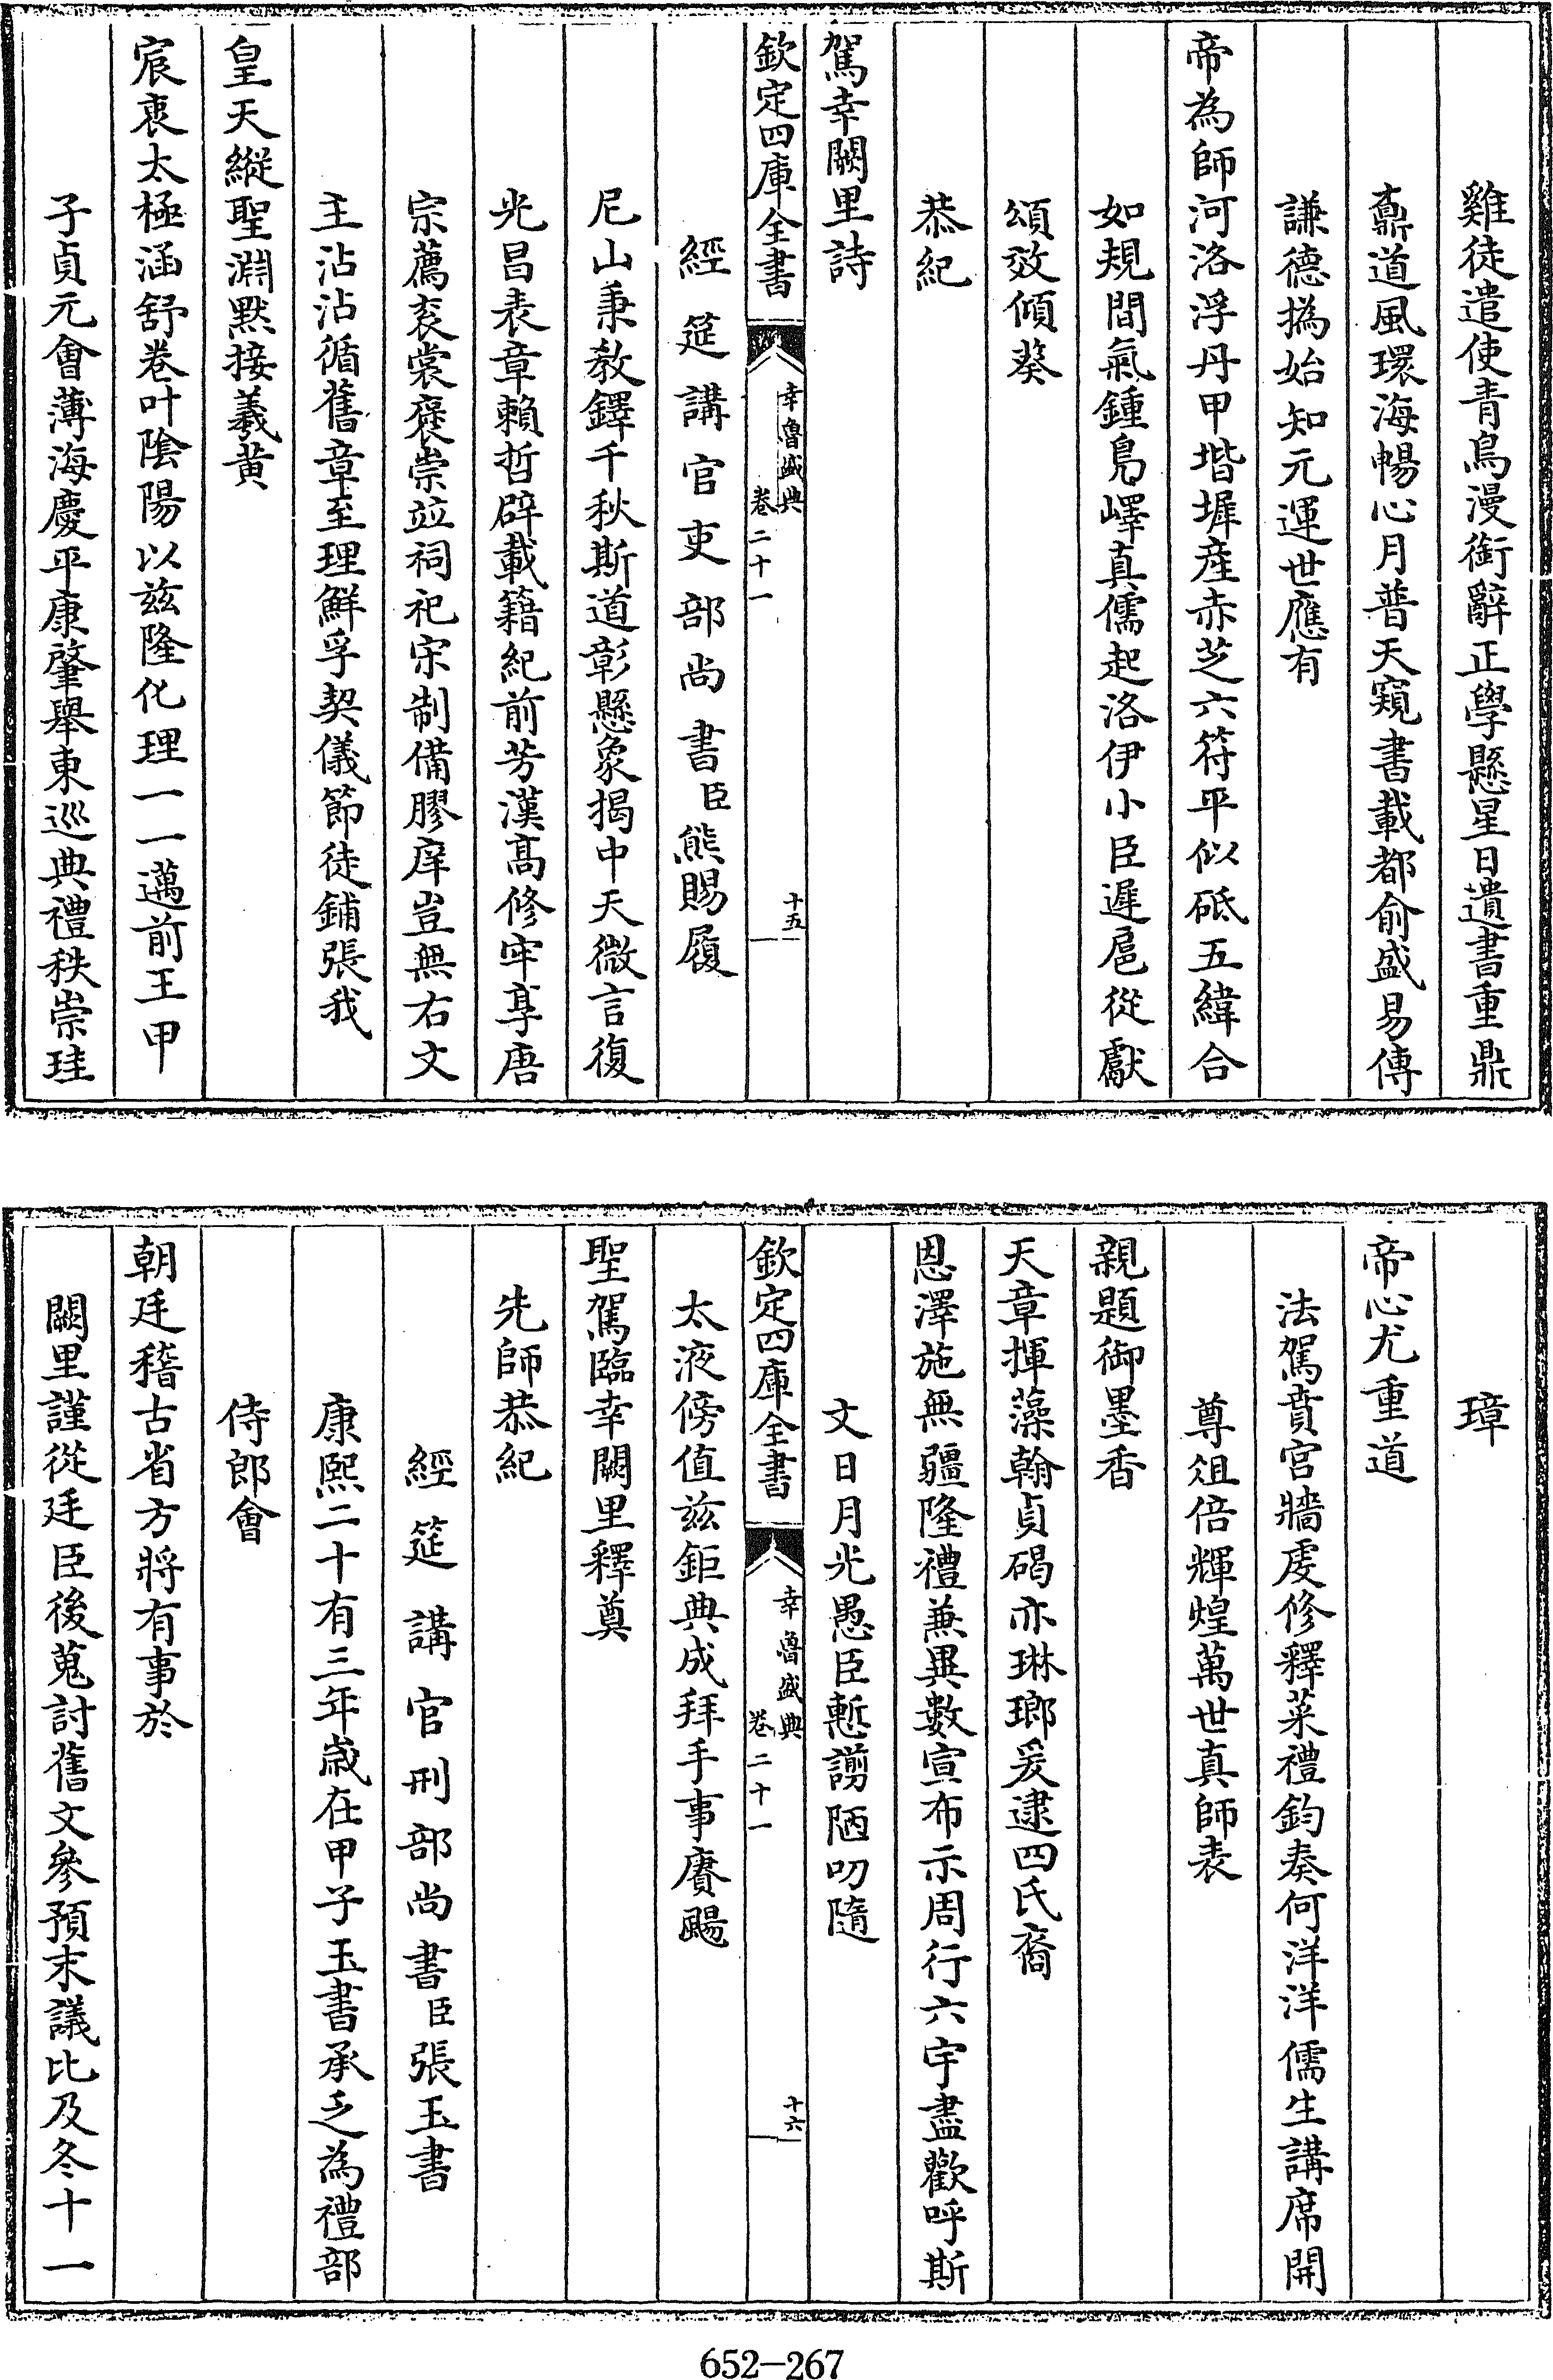 雞徒遣使青鳥漫銜辭正學懸星日遺書重鼎
鼐道風環海暢心月普天窺書載都俞盛易傳
謙德撝始知元運世應有
帝為師河洛浮丹甲堦墀産赤芝六符平似砥五緯合
如規間氣鍾鳧嶧真儒起洛伊小臣遲扈從獻
頌效傾葵
恭紀
駕幸闕里詩
欽定四庫全書
幸魯盛典
卷二十一
十五
經筵講官吏部尚書臣熊賜履
尼山秉教鐸千秋斯道彰懸象揭中天微言復
光昌表章賴哲辟載籍紀前芳漢高修牢享唐
宗薦衮裳襃崇竝祠祀宋制備膠庠豈無右文
主沾沾循舊章至理鮮孚契儀節徒鋪張我
皇天縱聖淵默接羲黄
宸衷太極涵舒卷叶隂陽以兹隆化理一一邁前王甲
子貞元會薄海慶平康肇舉東巡典禮秩崇珪
璋
帝心尤重道
法駕賁宮牆虔修釋菜禮鈞奏何洋洋儒生講席開
尊俎倍輝煌萬世真師表
親題御墨香
天章揮藻翰貞碣亦琳瑯爰逮四氏裔
恩澤施無疆隆禮兼異數宣布示周行六宇盡歡呼斯
文日月光愚臣慙謭陋叨隨
欽定四庫全書
幸魯盛典
卷二十一
十六
太液傍值兹鉅典成拜手事賡颺
聖駕臨幸闕里釋奠
先師恭紀
經筵講官刑部尚書臣張玉書
康熙二十有三年歳在甲子玉書承乏為禮部
侍郎會
朝廷稽古省方將有事於
闕里謹從廷臣後蒐討舊文參預末議比及冬十一
652-267